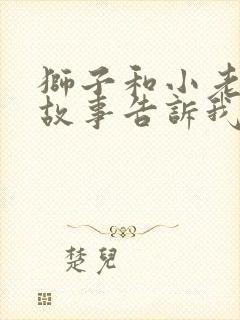 獅子和小老
故事告訴我
楚兒